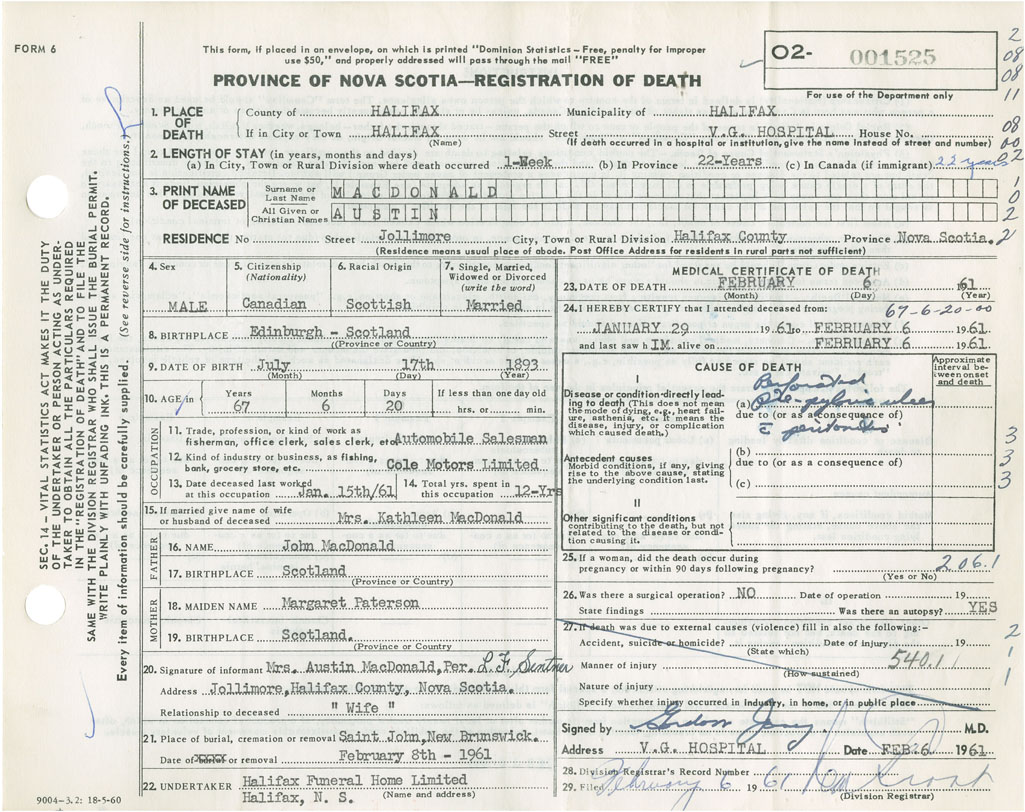 FORM 6
This form, if placed in an envelope, on which is printed "Dominion Statistics – Free, penalty for improper
use $50," and properly addressed will pass through the mail "FREE"
PROVINCE OF NOVA SCOTIA—REGISTRATION OF DEATH
02- 001525
For use of the Department only
2
08
08
11
08
00
02
1
0
2
2
1. PLACE OF DEATH
County of HALIFAX Municipality of HALIFAX
If in City or Town HALIFAX Street V.G. HOSPITAL House No.
(Name) (If death occurred in a hospital or institution, give the name instead of street and number)
2. LENGTH OF STAY (in years, months and days)
(a) In City, Town or Rural Division where death occurred 1-Week (b) In Province 22-Years (c) In Canada (if immigrant) 22 years
3. PRINT NAME OF DECEASED
Surname or Last Name MACDONALD
All Given or Christian Names AUSTIN
RESIDENCE No Street Jollimore City, Town or Rural Division Halifax County Province Nova Scotia.
(Residence means usual place of abode. Post Office Address for residents in rural parts not sufficient)
4. Sex MALE
5. Citizenship (Nationality) Canadian
6. Racial Origin Scottish
7. Single, Married, Widowed or Divorced (write the word) Married
8. BIRTHPLACE Edinburgh - Scotland
(Province or Country)
9. DATE OF BIRTH July 17th 1893
(Month) (Day) (Year)
10. AGE in Years 67 Months 6 Days 20 If less than one day old hrs. or min.
OCCUPATION
11. Trade, profession, or kind of work as
fisherman, office clerk, sales clerk, etc. Automobile Salesman
12. Kind of industry or business, as fishing,
bank, grocery store, etc. Cole Motors Limited
13. Date deceased last worked
at this occupation Jan. 15th/61
14. Total yrs. spent in
this occupation 12-Yrs
15. If married give name of wife
or husband of deceased Mrs. Kathleen MacDonald
FATHER
16. NAME John MacDonald
17. BIRTHPLACE Scotland
(Province or Country)
MOTHER
18. MAIDEN NAME Margaret Paterson
19. BIRTHPLACE Scotland.
(Province or Country)
20. Signature of informant Mrs. Austin MacDonald, Per.
Address Jollimore, Halifax County, Nova Scotia.
Relationship to deceased " Wife "
21. Place of burial, cremation or removal Saint John, New Brunswick.
Date of or removal February 8th - 1961
22. UNDERTAKER Halifax Funeral Home Limited
Halifax, N. S. (Name and address)
MEDICAL CERTIFICATE OF DEATH
23. DATE OF DEATH FEBRUARY 6 1961
(Month) (Day) (Year)
24. I HEREBY CERTIFY that I attended deceased from: 67-6-20-00
JANUARY 29 1961 to FEBRUARY 6 1961.
and last saw h IM. alive on FEBRUARY 6 1961.
CAUSE OF DEATH
Approximate interval between onset and death
I
Disease or condition directly leading to death (This does not mean
the mode of dying, e.g., heart failure, asthenia, etc. It means the
disease, injury, or complication
which caused death.)
Perforated
(a) pre-pyloric ulcer
due to (or as a consequence of)
peritonitis
Antecedent causes
Morbid conditions, if any, giving
rise to the above cause, stating
the underlying condition last.
(b)
due to (or as a consequence of)
(c)
3
3
3
II
Other significant conditions
contributing to the death, but not
related to the disease or condition causing it.
25. If a woman, did the death occur during
pregnancy or within 90 days following pregnancy? 206.1
(Yes or No)
26. Was there a surgical operation? NO Date of operation 19
State findings Was there an autopsy? YES
27. If death was due to external causes (violence) fill in also the following:-
Accident, suicide or homicide? Date of injury 19
(State which)
Manner of injury 540.1
(How sustained)
Nature of injury
Specify whether injury occurred in industry, in home, or in public place
2
1
1
Signed by Gordon M.D.
Address V.G. HOSPITAL Date FEB. 6 1961
28. Division Registrar's Record Number
29. Filed February 6 1961
(Division Registrar)
SEC. 14 – VITAL STATISTICS ACT MAKES IT THE DUTY
OF THE UNDERTAKER OR PERSON ACTING AS UNDERTAKER TO OBTAIN ALL THE PARTICULARS REQUIRED
IN THE "REGISTRATION OF DEATH" AND TO FILE THE
SAME WITH THE DIVISION REGISTRAR WHO SHALL ISSUE THE BURIAL PERMIT.
WRITE PLAINLY WITH UNFADING INK. THIS IS A PERMANENT RECORD.
Every item of information should be carefully supplied. (See reverse side for instructions.)
9004-3.2: 18-5-60